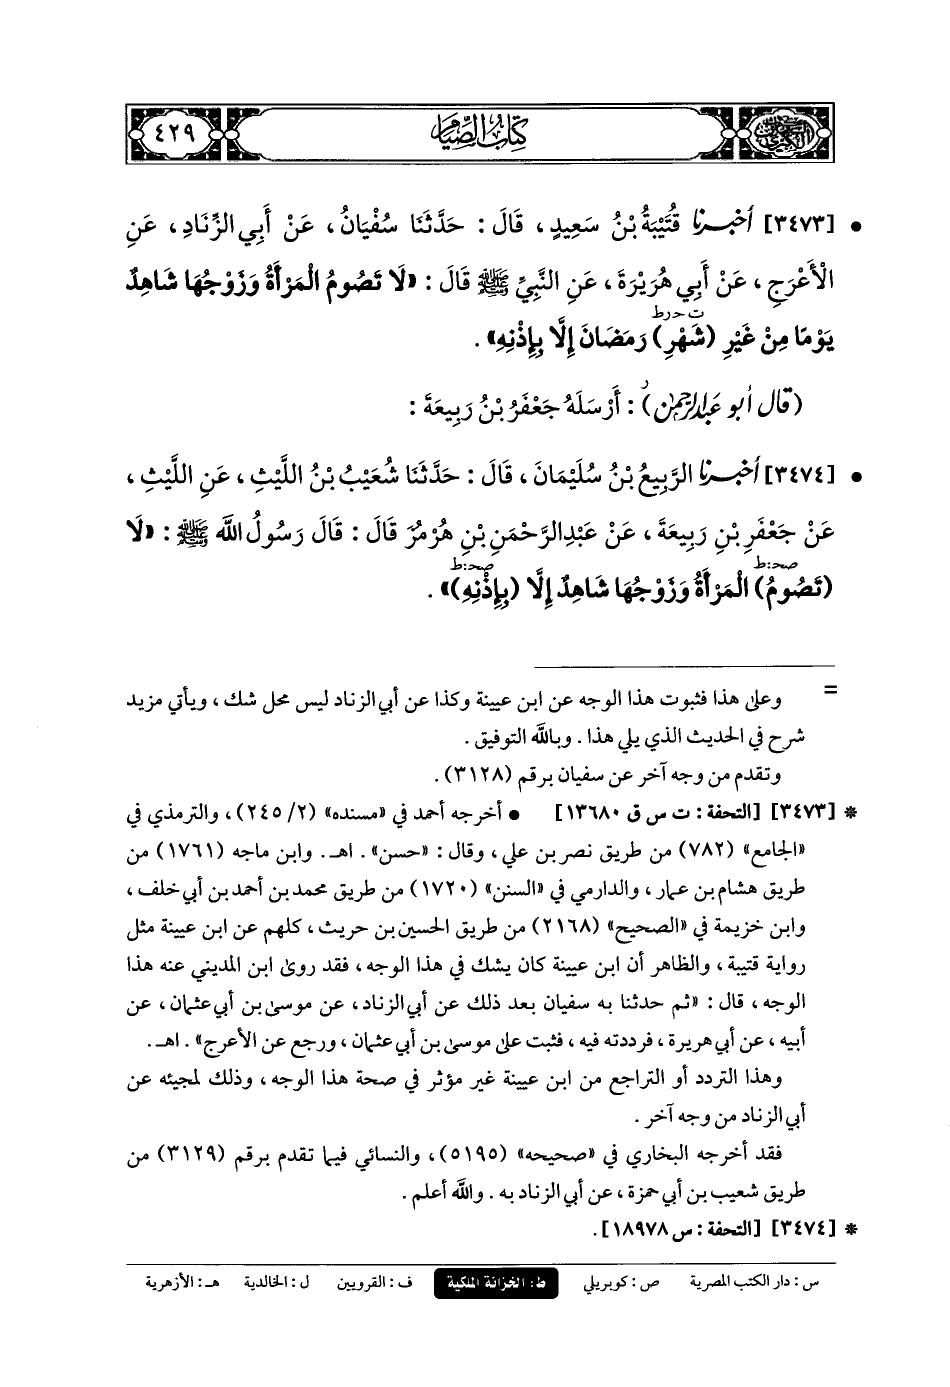 كتاب الصيام
٤٢٩
• [٣٤٧٣] أخبرنا قُتَيْبَةُ بْنُ سَعِيدٍ، قَالَ: حَدَّثَنَا سُفْيَانُ، عَنْ أَبِي الزِّنَادِ، عَنِ
الْأَعْرَجِ، عَنْ أَبِي هُرَيْرَةَ، عَنِ النَّبِيِّ ﷺ قَالَ: «لَا تَصُومُ الْمَرْأَةُ وَزَوْجُهَا شَاهِدٌ
يَوْمًا مِنْ غَيْرِ (شَهْرِ) رَمَضَانَ إِلَّا بِإِذْنِهِ».
(قال أبو عبد الرحمن): أَرْسَلَهُ جَعْفَرُ بْنُ رَبِيعَةَ:
• [٣٤٧٤] أخبرنا الرَّبِيعُ بْنُ سُلَيْمَانَ، قَالَ: حَدَّثَنَا شُعَيْبُ بْنُ اللَّيْثِ، عَنِ اللَّيْثِ،
عَنْ جَعْفَرِ بْنِ رَبِيعَةَ، عَنْ عَبْدِ الرَّحْمَنِ بْنِ هُرْمُزَ قَالَ: قَالَ رَسُولُ اللَّهِ ﷺ: «لَا
صحـ:ط صحـ:ط
(تَصُومُ) الْمَرْأَةُ وَزَوْجُهَا شَاهِدٌ إِلَّا (بِإِذْنِهِ)».
= وعلى هذا فثبوت هذا الوجه عن ابن عيينة وكذا عن أبي الزناد ليس محل شك، ويأتي مزيد
شرح في الحديث الذي يلي هذا. وبالله التوفيق.
وتقدم من وجه آخر عن سفيان برقم (٣١٢٨).
* [٣٤٧٣] [التحفة: ت س ق ١٣٦٨٠] • أخرجه أحمد في «مسنده» (٢/ ٢٤٥)، والترمذي في
«الجامع» (٧٨٢) من طريق نصر بن علي، وقال: «حسن». اهـ. وابن ماجه (١٧٦١) من
طريق هشام بن عمار، والدارمي في «السنن» (١٧٢٠) من طريق محمد بن أحمد بن أبي خلف،
وابن خزيمة في «الصحيح» (٢١٦٨) من طريق الحسين بن حريث، كلهم عن ابن عيينة مثل
رواية قتيبة، والظاهر أن ابن عيينة كان يشك في هذا الوجه، فقد روى ابن المديني عنه هذا
الوجه، قال: «ثم حدثنا به سفيان بعد ذلك عن أبي الزناد، عن موسى بن أبي عثمان، عن
أبيه، عن أبي هريرة، فرددته فيه، فثبت على موسى بن أبي عثمان، ورجع عن الأعرج». اهـ.
وهذا التردد أو التراجع من ابن عيينة غير مؤثر في صحة هذا الوجه، وذلك لمجيئه عن
أبي الزناد من وجه آخر.
فقد أخرجه البخاري في «صحيحه» (٥١٩٥)، والنسائي فيما تقدم برقم (٣١٢٩) من
طريق شعيب بن أبي حمزة، عن أبي الزناد به. والله أعلم.
* [٣٤٧٤] [التحفة: س ١٨٩٧٨].
س: دار الكتب المصرية ص: كوبريلي ط: الخزانة الملكية ف: القرويين ل: الخالدية هـ: الأزهرية